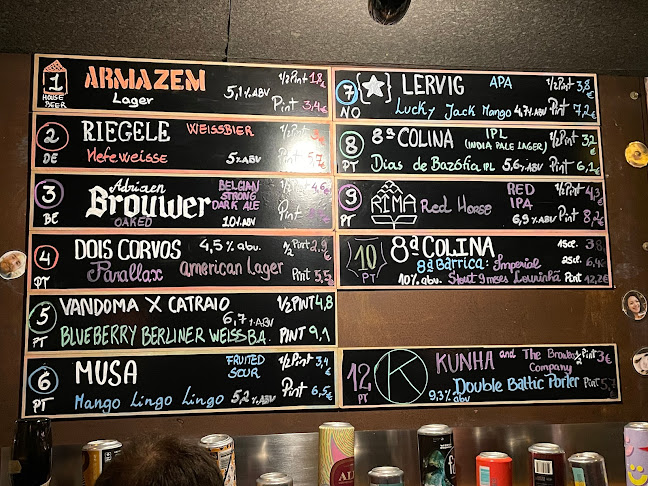 1 ARMAZEM ½ Pint 1,8
HOUSE BEER Lager 5,1% ABV Pint 3,4€
2 RIEGELE WEISSBIER ½ Pint
DE Hefeweisse 5% ABV Pint 5,7€
3 Adriaen Brouwer BELGIAN STRONG DARK ALE ½ Pint 4,6€
BE OAKED 10% ABV Pint
4 DOIS CORVOS 4,5% abv. ½ Pint 2,9€
PT Parallax American Lager Pint 5,5
5 VANDOMA X CATRAIO ½ PINT 4,8
PT BLUEBERRY BERLINER WEISS B.A. 6,7% ABV PINT 9,1
6 MUSA FRUITED SOUR ½ Pint 3,4€
PT Mango Lingo Lingo 5,2% ABV Pint 6,5€
7 LERVIG APA ½ Pint 3,8€
NO Lucky Jack Mango 4,7% ABV Pint 7,2€
8 8ª COLINA IPL (INDIA PALE LAGER) ½ Pint 3,2€
PT Dias de Bazófia IPL 5,6% ABV Pint 6,1€
9 RIMA Red Horse RED IPA ½ Pint 4,3€
PT 6,9% ABV Pint 8,2€
10 8ª COLINA 15cl. 3,8
PT 8ª Barrica: Imperial 25cl. 6,4€
10% abv. Stout 9 meses Lourinhã Pint 12,2€
12 K KUNHA and The Browers Company ½ Pint 3€
PT 9,3% abv Double Baltic Porter Pint 5,7